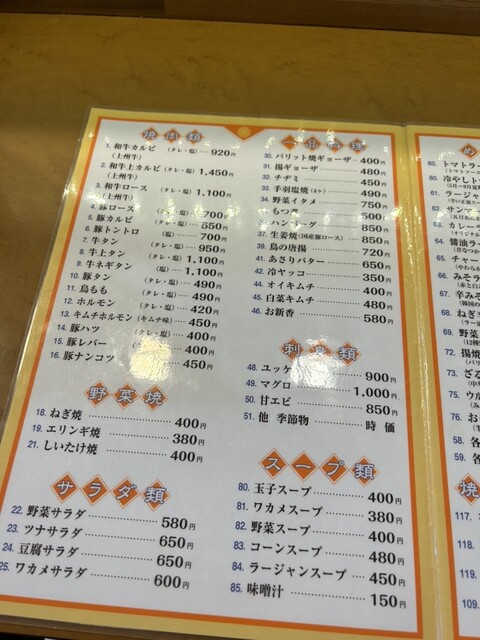 焼肉類
1. 和牛カルビ (タレ・塩) 920円
(上州牛)
2. 和牛上カルビ (タレ・塩) 1,450円
(上州牛)
3. 和牛ロース (タレ・塩) 1,100円
(上州牛)
4. 豚ロース (タレ・塩) 700円
5. 豚カルビ (タレ・塩) 550円
6. 豚トントロ (塩) 700円
7. 牛タン (タレ・塩) 950円
8. 牛上タン (タレ・塩) 1,100円
9. 牛ネギタン (塩) 1,100円
10. 豚タン (タレ・塩) 490円
11. 鳥もも (タレ・塩) 490円
12. ホルモン (タレ・塩) 420円
13. キムチホルモン (キムチ味) 450円
14. 豚ハツ (タレ・塩) 400円
15. 豚レバー (タレ・塩) 400円
16. 豚ナンコツ 450円
野菜焼
18. ねぎ焼 400円
19. エリンギ焼 380円
21. しいたけ焼 400円
サラダ類
22. 野菜サラダ 580円
23. ツナサラダ 650円
24. 豆腐サラダ 650円
25. ワカメサラダ 600円
一品料理
30. パリット焼ギョーザ 400円
31. 揚ギョーザ 480円
32. チヂミ 450円
33. 手羽塩焼(4ヶ) 490円
34. 野菜イタメ 750円
もつ煮 500円
ハンバーグ 850円
37. 生姜焼(国産豚ロース) 850円
39. 鳥の唐揚 720円
41. あさりバター 650円
42. 冷ヤッコ 350円
44. オイキムチ 400円
45. 白菜キムチ 480円
46. お新香 580円
刺身類
48. ユッケ 900円
49. マグロ 1,000円
50. 甘エビ 850円
51. 他 季節物 時価
スープ類
80. 玉子スープ 400円
81. ワカメスープ 380円
82. 野菜スープ 400円
83. コーンスープ 480円
84. ラージャンスープ 450円
85. 味噌汁 150円
め
60. トマトラー
(トマトソー
62. 冷やしト
(5月~9月
61. ラージャ
63. サンラー
53. カレーラ
(オリジナル
64. 醤油ラー
65. チャー
(やわらか
66. みそラ
67. 辛みそ
(韓国の
68. ねぎ
69. 野菜
(12種
72. 揚焼
73. ざる
75. ウル
76. お
58. 各
59. 各
焼
117.
118.
109.